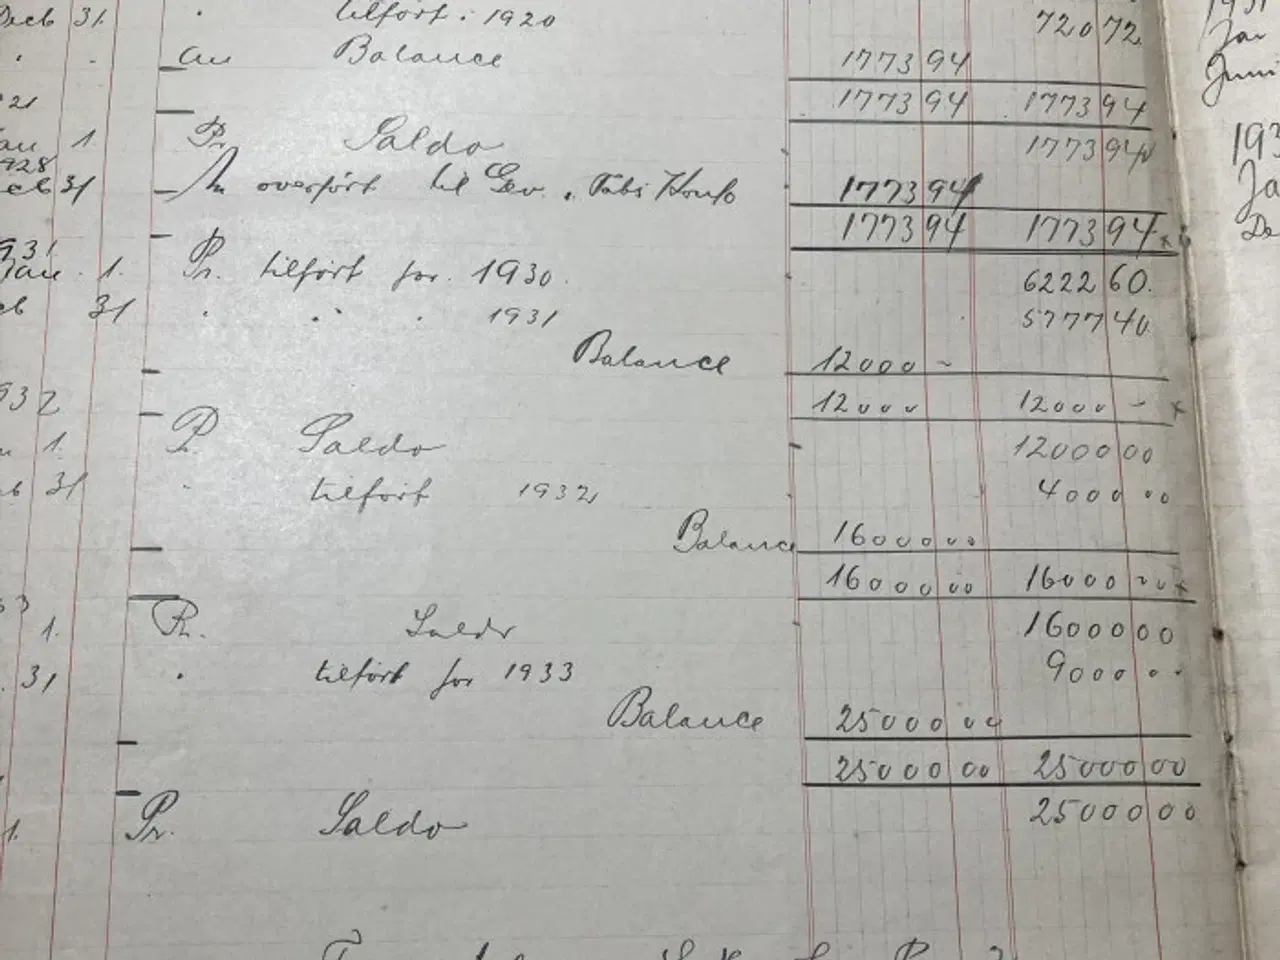 Decb 31 " tilført i 1920 720 72
" " an Balance 1773 94
1773 94 1773 94
21
Jan 1 Pr Saldo 1773 94
1928
Decb 31 An overført til Gev. & Tabs Konto 1773 94
1773 94 1773 94 x
1931
Jan. 1. Pr. tilført for 1930. 6222 60.
31 " " " 1931 5777 40
Balance 12000 -
12000 12000 - x
932
1. Pr. Saldo 12000 00
31 " tilført 1932 4000 00
Balance 16000 00
16000 00 16000 00 x
1. Pr. Saldo 16000 00
31 " tilført for 1933 9000 00
Balance 25000 00
25000 00 25000 00
1. Pr. Saldo 25000 00
1931
Jan
Juni
193
Ja
De